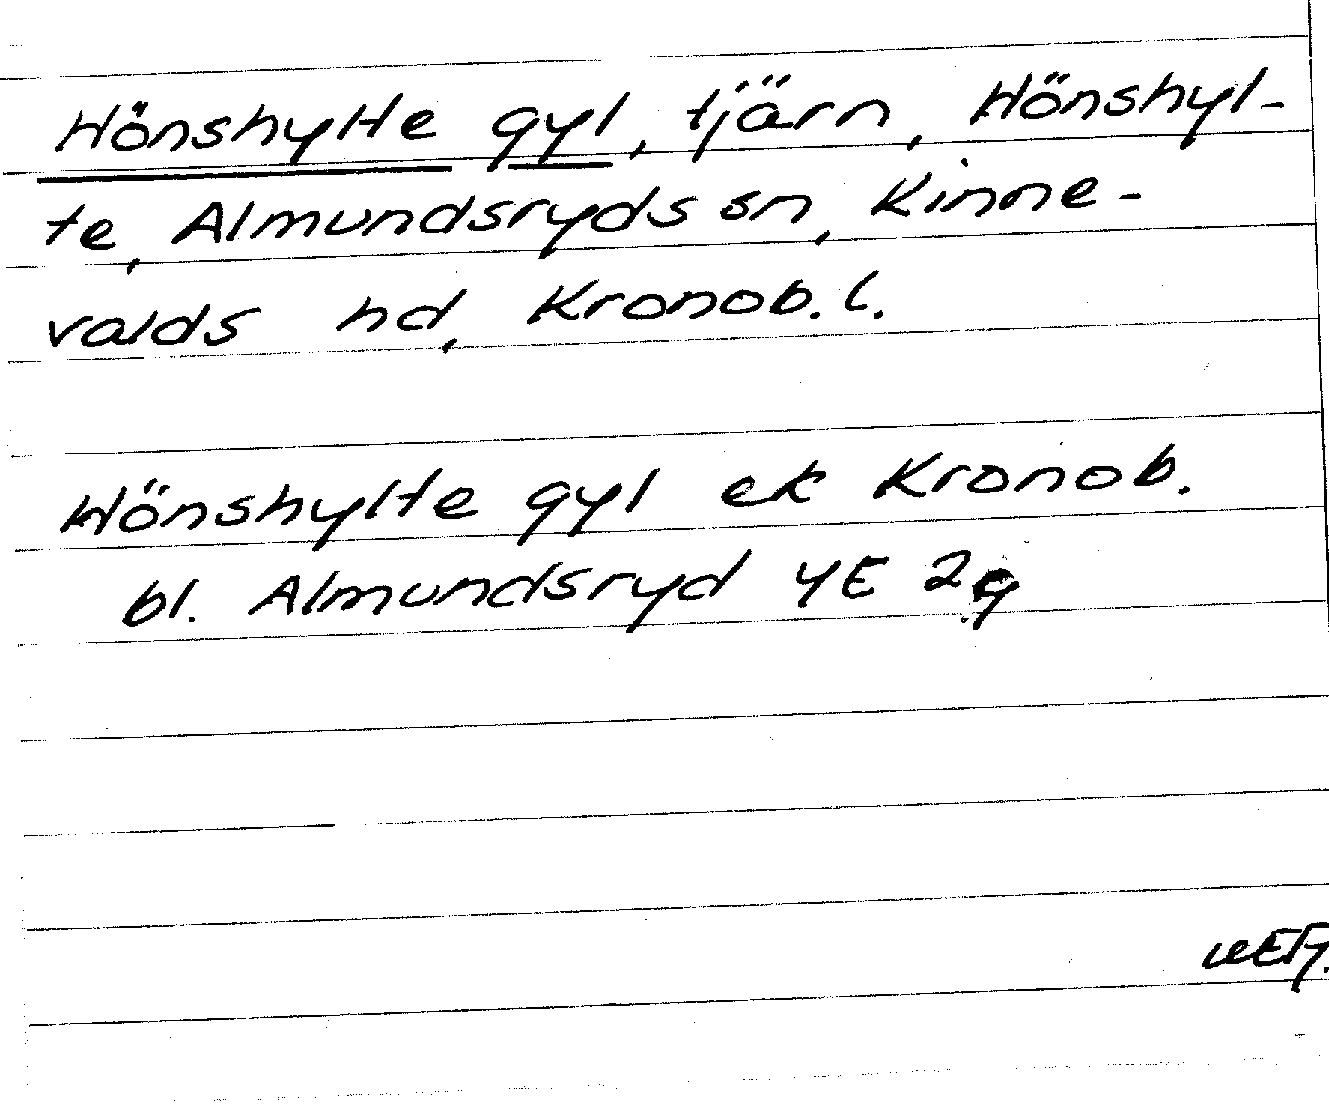 Hönshylte gyl, tjärn, Hönshyl-
te, Almundsryds sn, Kinne-
valds hd, Kronob. l.
Hönshylte gyl ek Kronob.
bl. Almundsryd 4E 2g